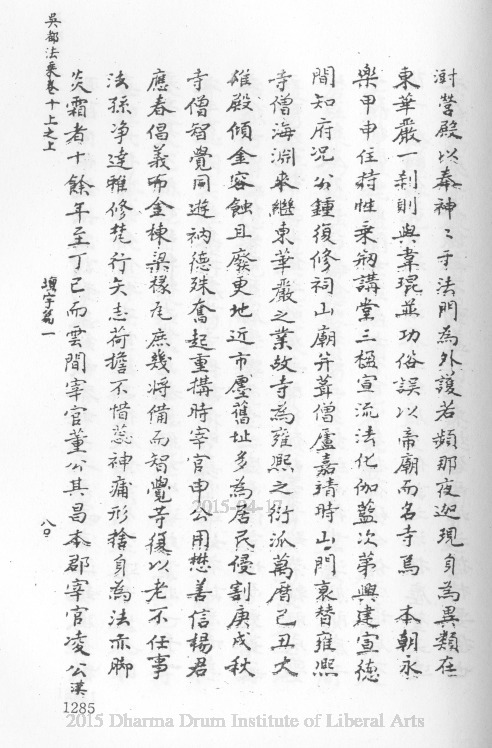 澍營殿以奉神〻于法門為外護若頻那夜迦現身為異類在
東華嚴一刹則與韋琨並功俗誤以帝廟而名寺焉　本朝永
樂甲申住持性乘剏講堂三楹宣流法化伽藍次第興建宣德
間知府况公鍾復修祠山廟并葺僧廬嘉靖時山門衰替雍熙
寺僧海淵來繼東華嚴之業故寺為雍熙之衍派萬曆己丑大
雄殿傾金容蝕且廢更地近市廛舊址多為居民侵割庚戌秋
寺僧智覺同遊衲德殊奮起重搆時宰官申公用懋善信楊君
應春倡義布金棟梁椽瓦庶幾將備而智覺等復以老不任事
法孫净達雅修梵行矢志荷擔不惜蕊神痡形捨身為法亦脚
炎霜者十餘年至丁巳而雲間宰官董公其昌本郡宰官凌公漢
吳都法乘卷十上之上
項字篇一
八〇
1285
2015-04-17
2015 Dharma Drum Institute of Liberal Arts